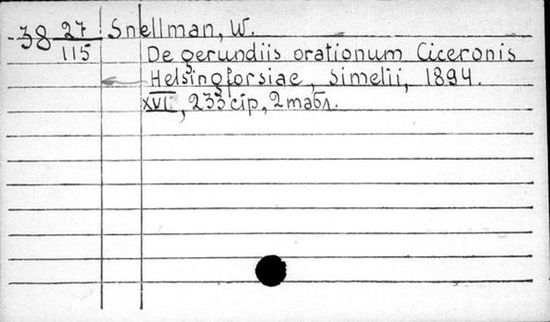 38 27/115 Snellman, W.
De gerundiis orationum Ciceronis
Helsingforsiae, Simelii, 1894.
XVI, 233 cīp, 2 табл.